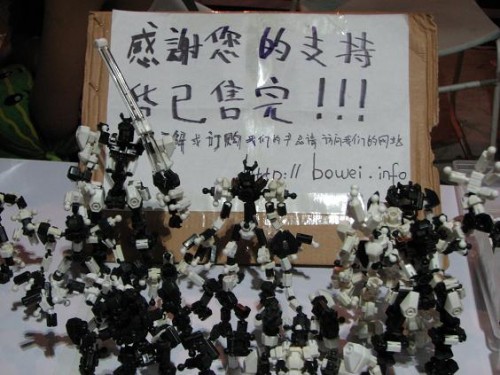 感謝您的支持
货已售完!!!
解或订购我们的产品请访问我们的网站
http://bowei.info